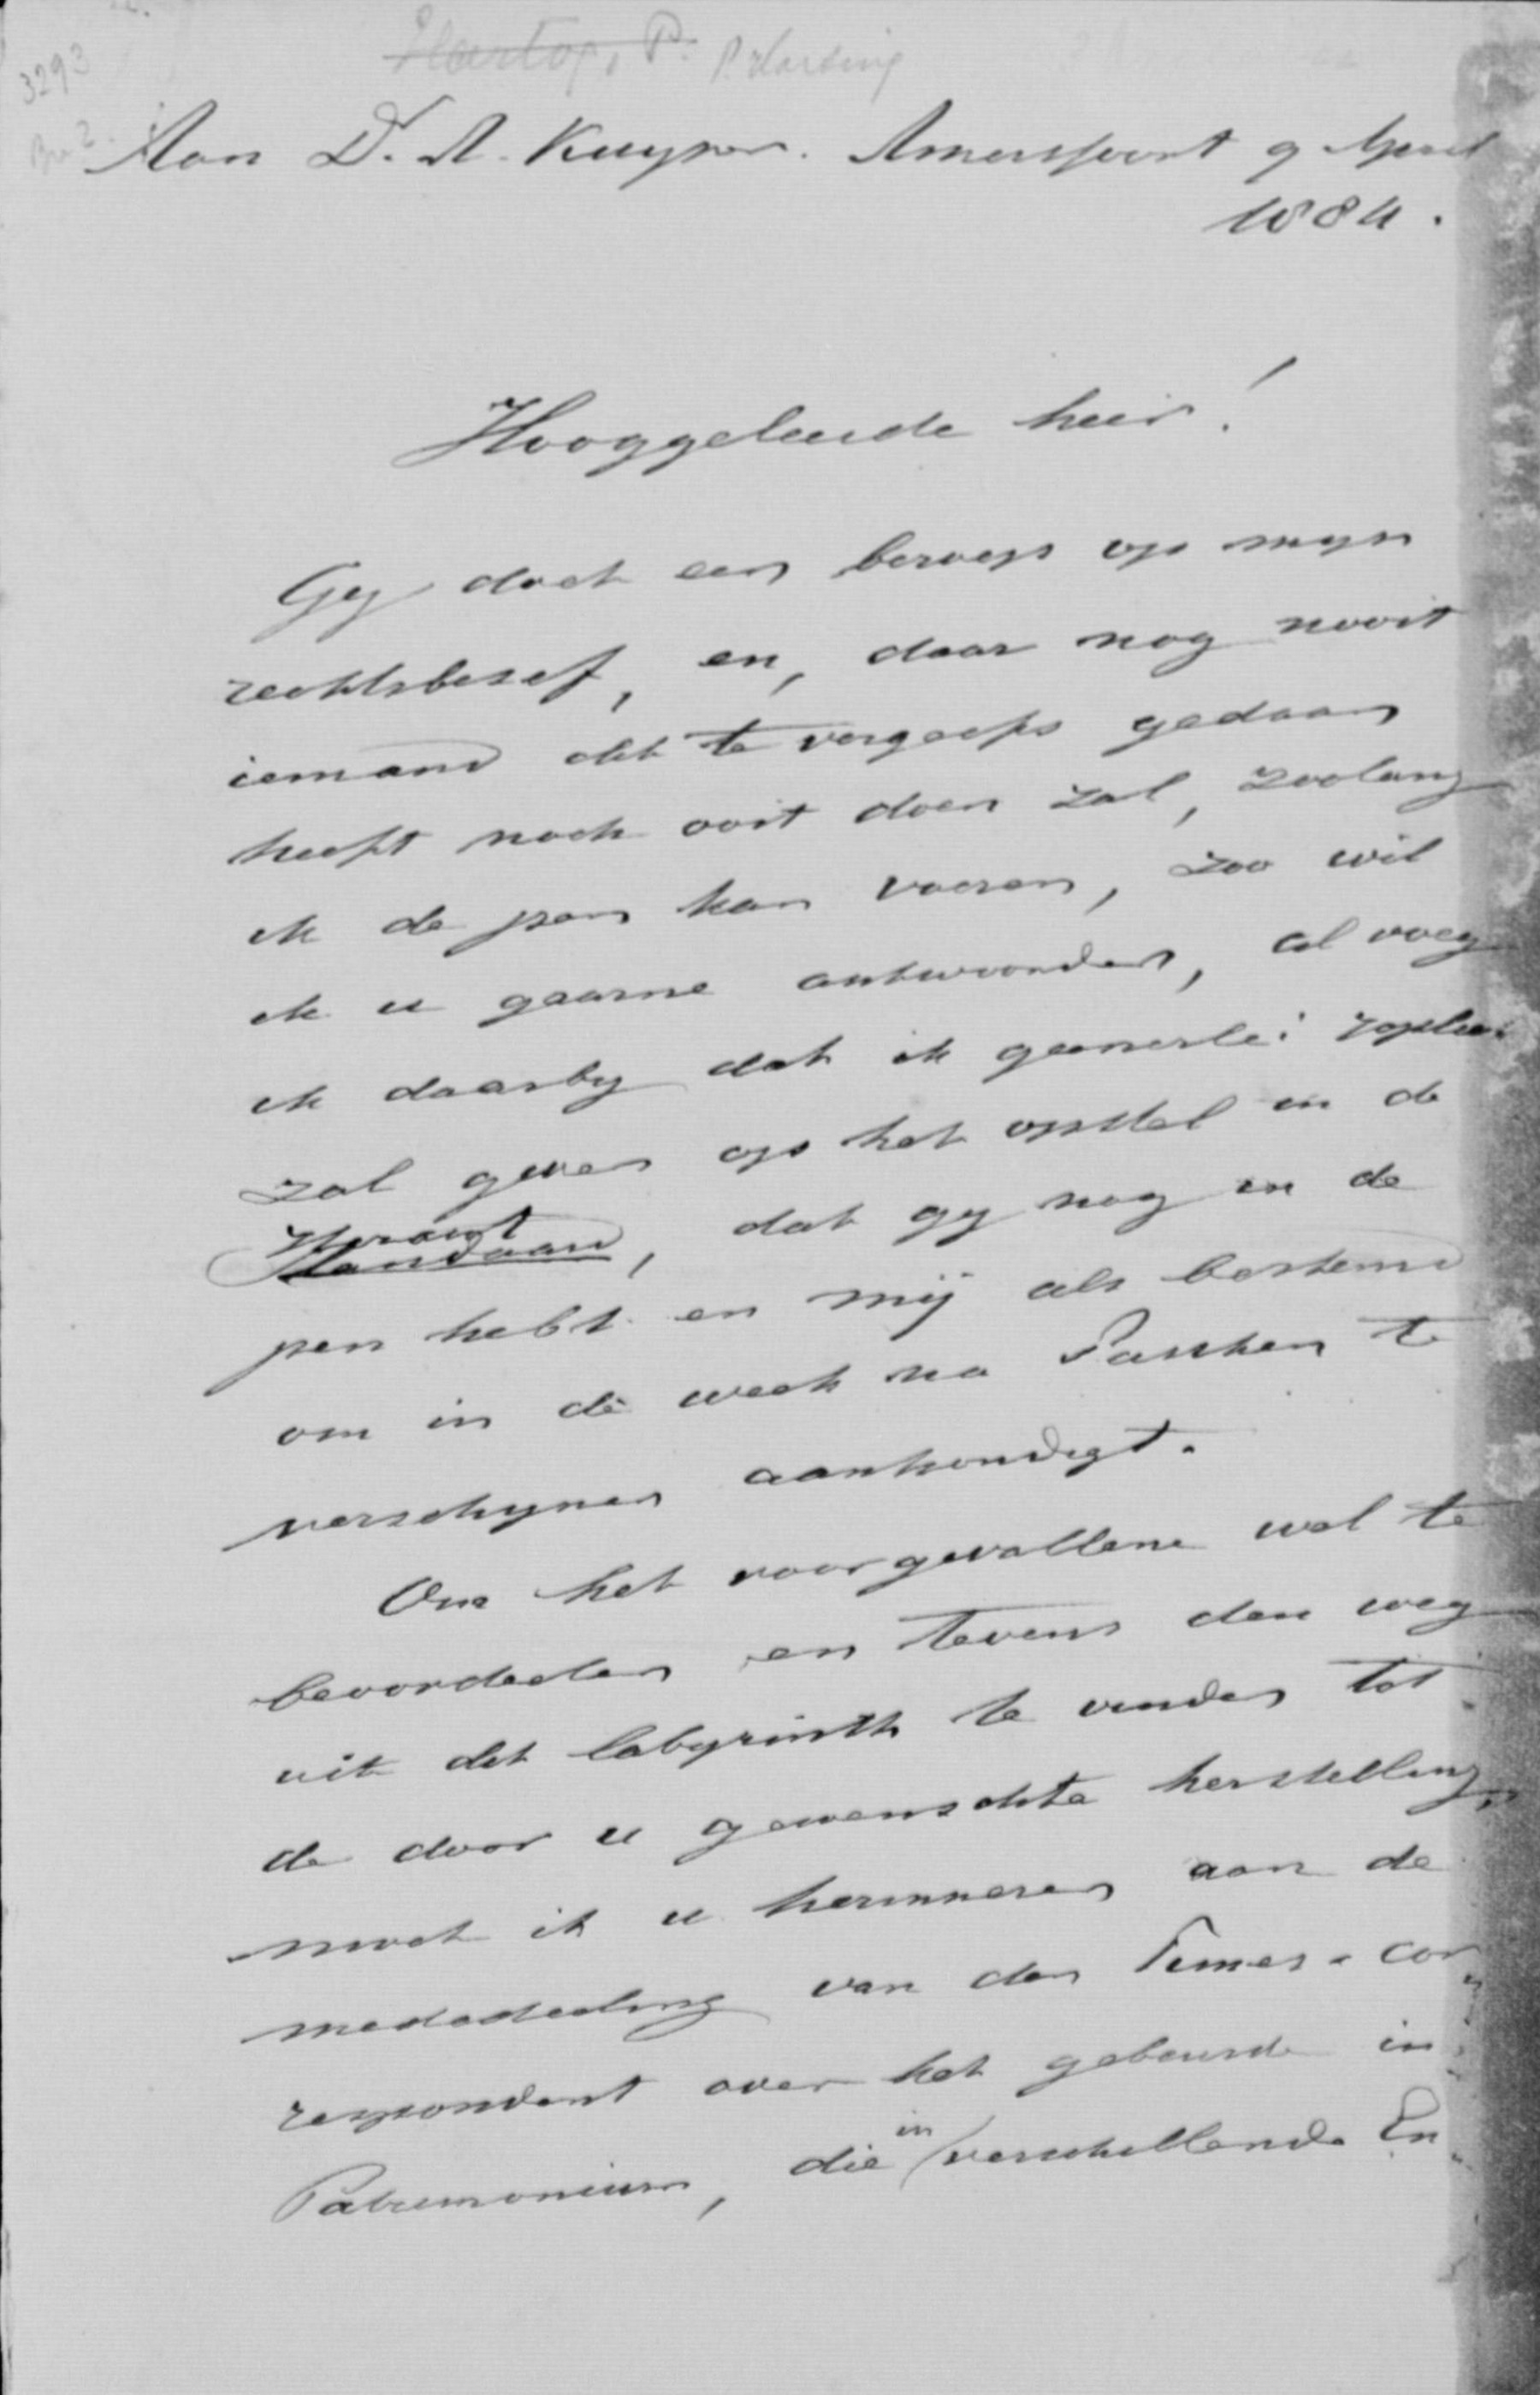 3293
Hartog, P. P. Harting
Br 2.
Aan Dr. A. Kuyper. Amersfoort 9 April
1884.
Hooggeleerde heer!
Gy doet een beroep op myn
rechtsbesef, en, daar nog nooit
iemand dit te vergeefs gedaan
heeft noch ooit doen zal, zoolang
ik de pen kan voeren, zoo wil
ik u gaarne antwoorden, al voeg
ik daarby dat ik geenerlei repliek
zal geven op het opstel in de
Heraut
Standaard, dat gy nog in de
pen hebt en mij als bestemd
om in de week na Paschen te
verschynen aankondigt.
Om het voorgevallene wel te
beoordeelen en tevens den weg
uit dit labyrinth te vinden tot
de door u gewenschte herstelling,
moet ik u herinneren aan de
mededeeling van den Times-cor
respondent over het gebeurde in
Patrimonium, die in verschillende En